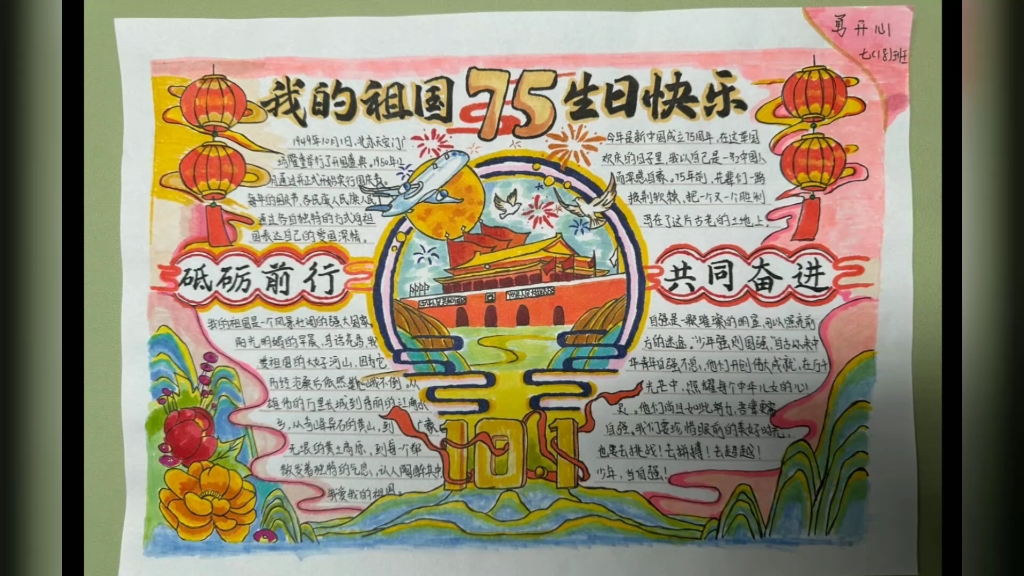 勇开心
七(18)班
我的祖国75生日快乐
1949年10月1日,北京天安门广
场隆重举行了开国盛典,1950年以
每年的国庆节,各民族人民
通过各自独特的方式向祖
国表达自己的爱国深情。
今年是新中国成立75周年,在这举国
欢庆的日子里,我以自己是一
而深感自豪。75年前,先辈们一路
披荆斩棘,把一个又一个胜利
写在了这片古老的土地上
砥砺前行
共同奋进
我的祖国是一个风景壮阔的强大国家
阳光明媚的早晨,鸟语花香,我
爱祖国的大好河山,因为它
历经沧桑后依然
雄伟的万里长城到秀丽的江南水
乡,从奇峰异石的黄山,到
无垠的黄土高原,到每个都
散发着独特的气息,让人陶醉其中
我爱我的祖国。
自强是一颗璀璨的明星,可以照亮前
方的迷途,“少年强则国强”自古以来中
华青年自强不息,他们开创伟大成就,在历史
光芒中,照耀每个中华儿女的心
灵。他们尚且如此努力,吾辈更需
自强。我们要珍惜眼前的美好时光,
也要去挑战!去拼搏!去超越!
少年,当自强!
10.1